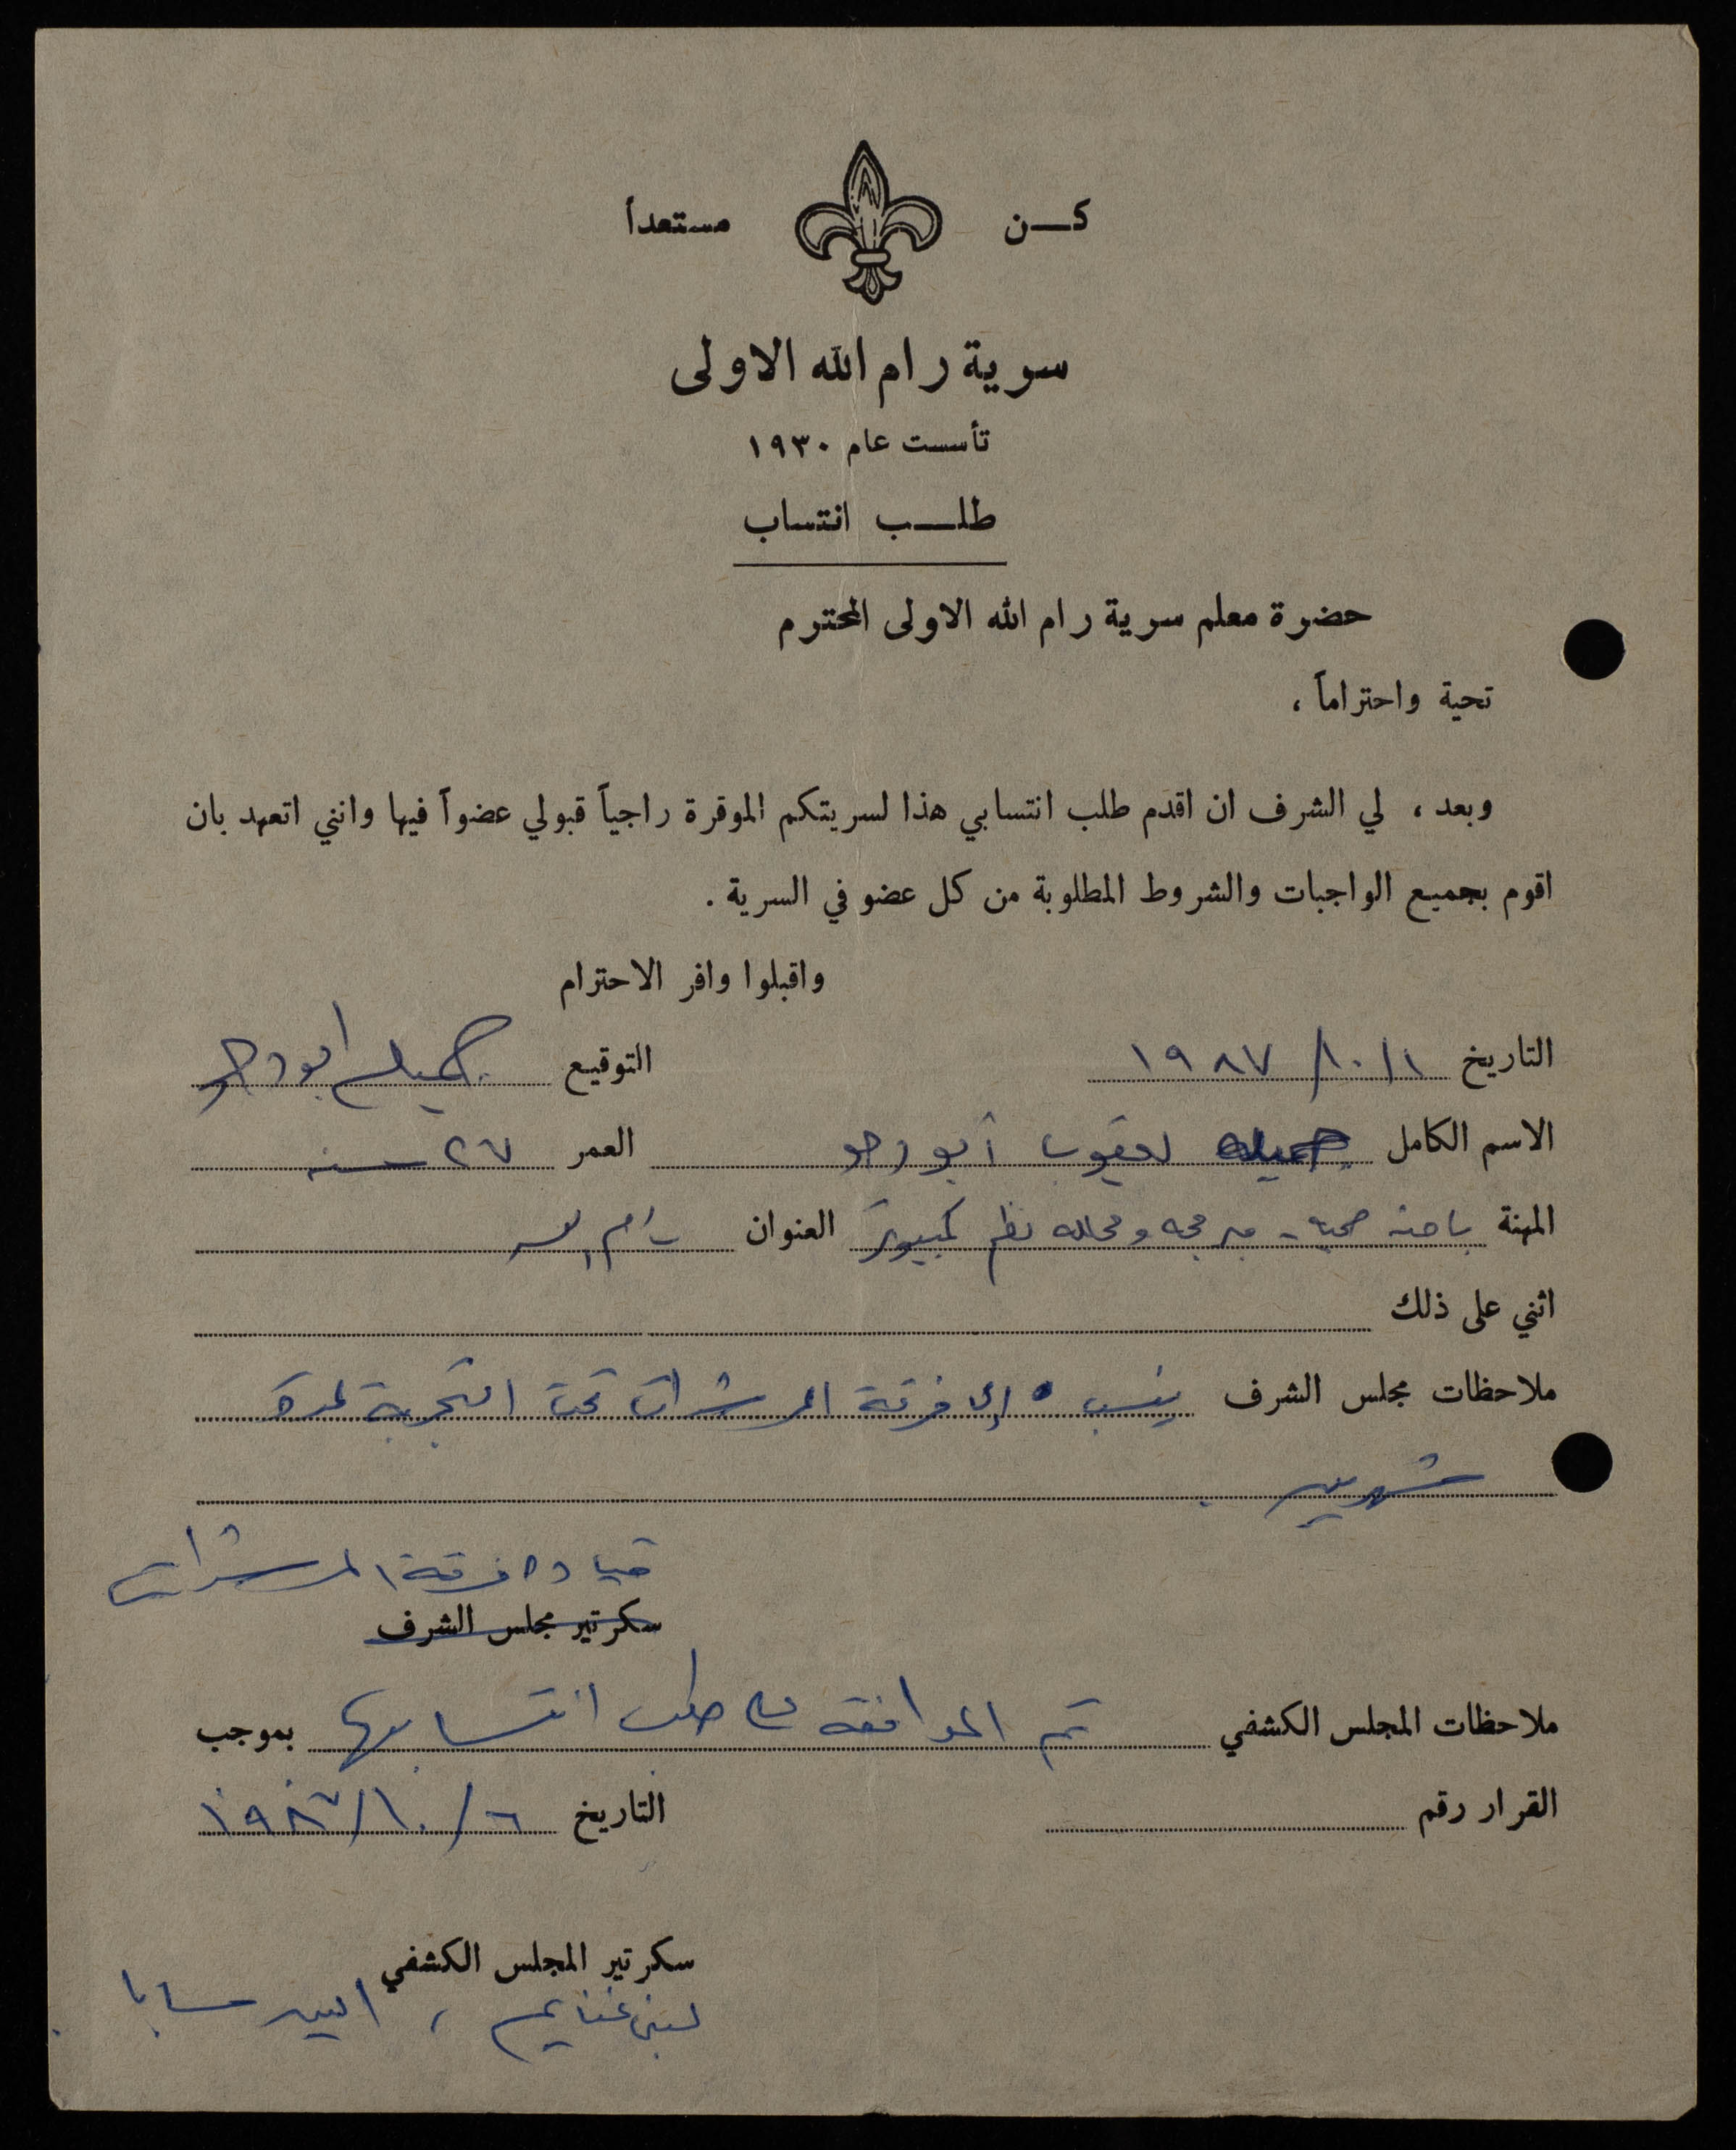 كـن مستعداً
سرية رام الله الاولى
تأسست عام ١٩٣٠
طلـــب انتساب
حضرة معلم سرية رام الله الاولى المحترم
تحية واحتراماً ،
وبعد ، لي الشرف ان اقدم طلب انتسابي هذا لسريتكم الموقرة راجياً قبولي عضواً فيها وانني اتعهد بان
اقوم بجميع الواجبات والشروط المطلوبة من كل عضو في السرية .
واقبلوا وافر الاحترام
التاريخ ١٩٨٧/١٠/١ التوقيع جميله ابو دحو
الاسم الكامل جميله يعقوب أبو دحو العمر ٢٧ سنه
المهنة باحثه صحيه - مبرمجه ومحلله نظم كمبيوتر العنوان رام الله
اثني على ذلك
ملاحظات مجلس الشرف ينسب إلى فرقة المرشدات تحت التجربة لمدة
شهرين .
قيادة فرقة المرشدات
سكرتير مجلس الشرف
ملاحظات المجلس الكشفي تم الموافقة على طلب انتسابها بموجب
القرار رقم التاريخ ١٩٨٧/١٠/٦
سكرتير المجلس الكشفي
لبنى غنايم ، سابا